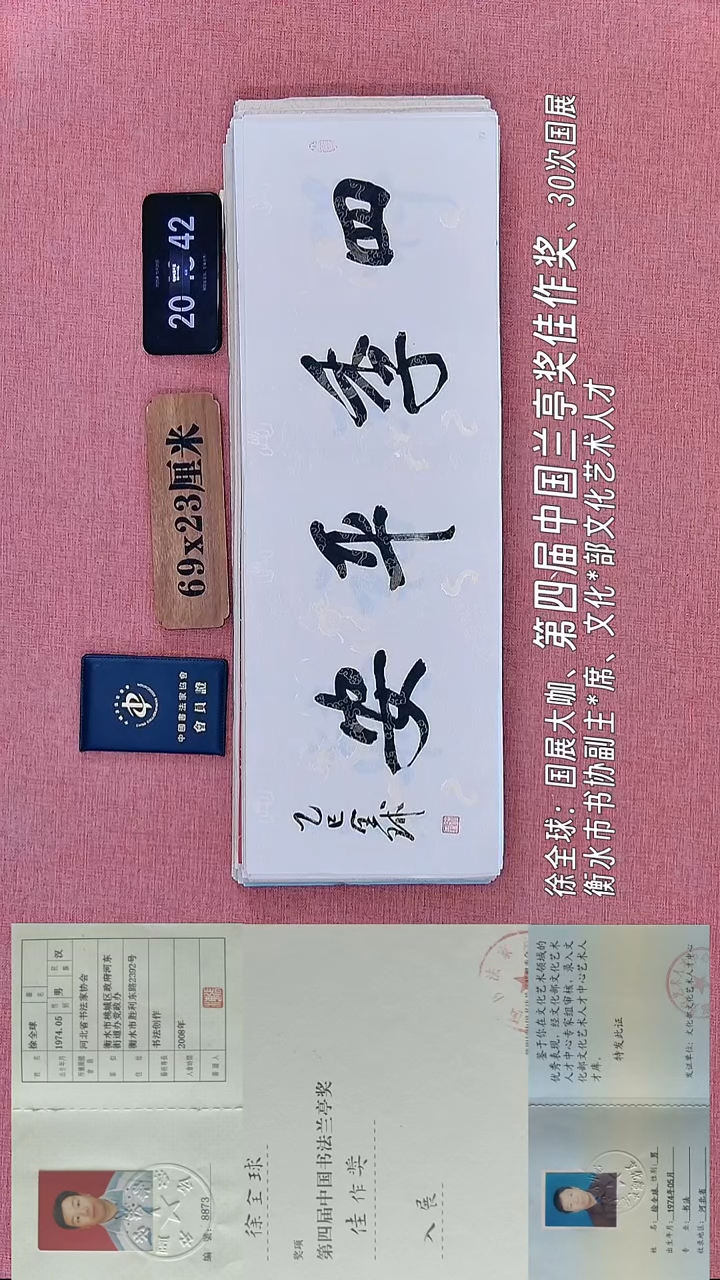 中國書法家協會
會員證
69x23厘米
20 42
四季平安
乙巳 全球
徐全球：国展大咖、第四届中国兰亭奖佳作奖、30次国展
衡水市书协副主*席、文化*部文化艺术人才
编号：8873
姓名 徐全球
出生年月 1974.05 性别 男 民族 汉
河北省书法家协会
单位 衡水市桃城区政府河东街道办党政办
住址 衡水市胜利东路2392号
书法创作
2008年
徐全球
奖项
第四届中国书法兰亭奖
佳作奖
入展
姓名：徐全球 性别：男
出生年月：1974年05月
专业：书法
收录地区：河北省
鉴于你在文化艺术领域的
优秀表现，经文化部文化艺术
人才中心专家组审核，录入文
化部文化艺术人才中心艺术人
才库。
特发此证
发证单位：文化部文化艺术人才中心